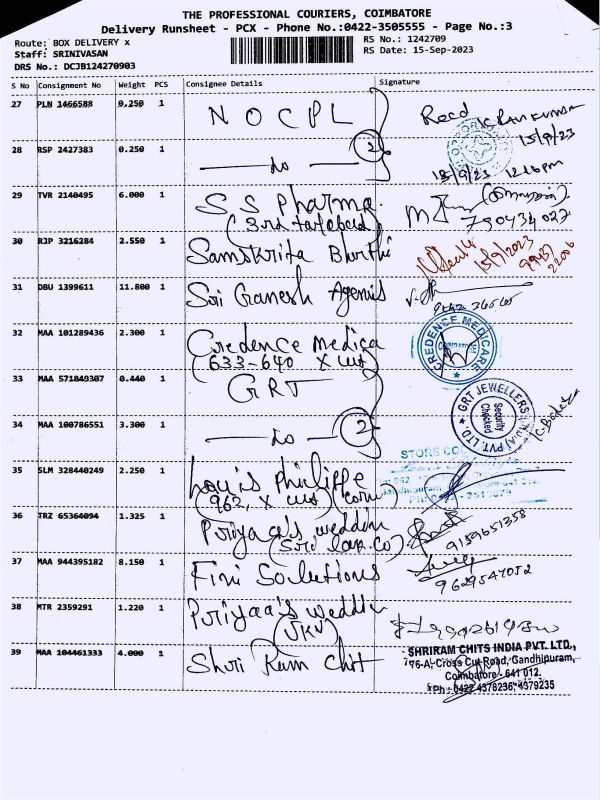 THE PROFESSIONAL COURIERS, COIMBATORE
Delivery Runsheet - PCX - Phone No.:0422-3505555 - Page No.:3
Route: BOX DELIVERY x
RS No.: 1242709
Staff: SRINIVASAN
RS Date: 15-Sep-2023
DRS No.: DCJB124270903
S No Consignment No Weight PCS Consignee Details Signature
27 PLN 1466588 0.250 1 NOCPL Recd
15/9/23
28 RSP 2427383 0.250 1 2
12:16pm
29 TVR 2140495 6.000 1 S S Pharma
30 RJP 3216284 2.550 1 Samskrita Bharthi 15/9/2023
31 DBU 1399611 11.800 1 Sri Ganesh Agencies
32 MAA 101289436 2.300 1 Credence Medica CREDENCE MEDICARE
(633-640 X cut)
33 MAA 571849307 0.440 1 GRT GRT JEWELLERS PVT. LTD.
Security Checked
34 MAA 100786551 3.300 1 2
STORE CO
35 SLM 328440249 2.250 1 Louis Philippe
(962, X cut) (corn)
36 TRZ 65364094 1.325 1 Priyaa's weddin
9159651358
37 MAA 944395182 8.150 1 Fini Solutions
9629547052
38 MTR 2359291 1.220 1 Priyaa's weddin
(JKV)
39 MAA 104461333 4.000 1 Shri Ram Chit SHRIRAM CHITS INDIA PVT. LTD.,
176-A, Cross Cut Road, Gandhipuram,
Coimbatore - 641 012.
Ph: 0422 4378236, 4379235